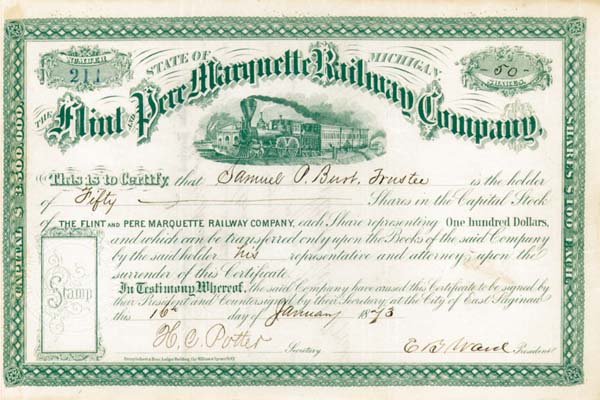 NUMBER
211
STATE OF MICHIGAN
50
SHARES
THE Flint AND Pere Marquette Railway Company.
CAPITAL $ 3,500,000.
SHARES $100 EACH.
This is to Certify, that Samuel P. Burt, Trustee is the holder
of Fifty Shares in the Capital Stock
of THE FLINT AND PERE MARQUETTE RAILWAY COMPANY, each Share representing One hundred Dollars,
and which can be transferred only upon the Books of the said Company
by the said holder his representative and attorney upon the
surrender of this Certificate.
In Testimony Whereof, the said Company have caused this Certificate to be signed by
their President and Countersigned by their Secretary at the City of East Saginaw
this 16th day of January 1873
Stamp
H. C. Potter
Secretary
E B Ward President